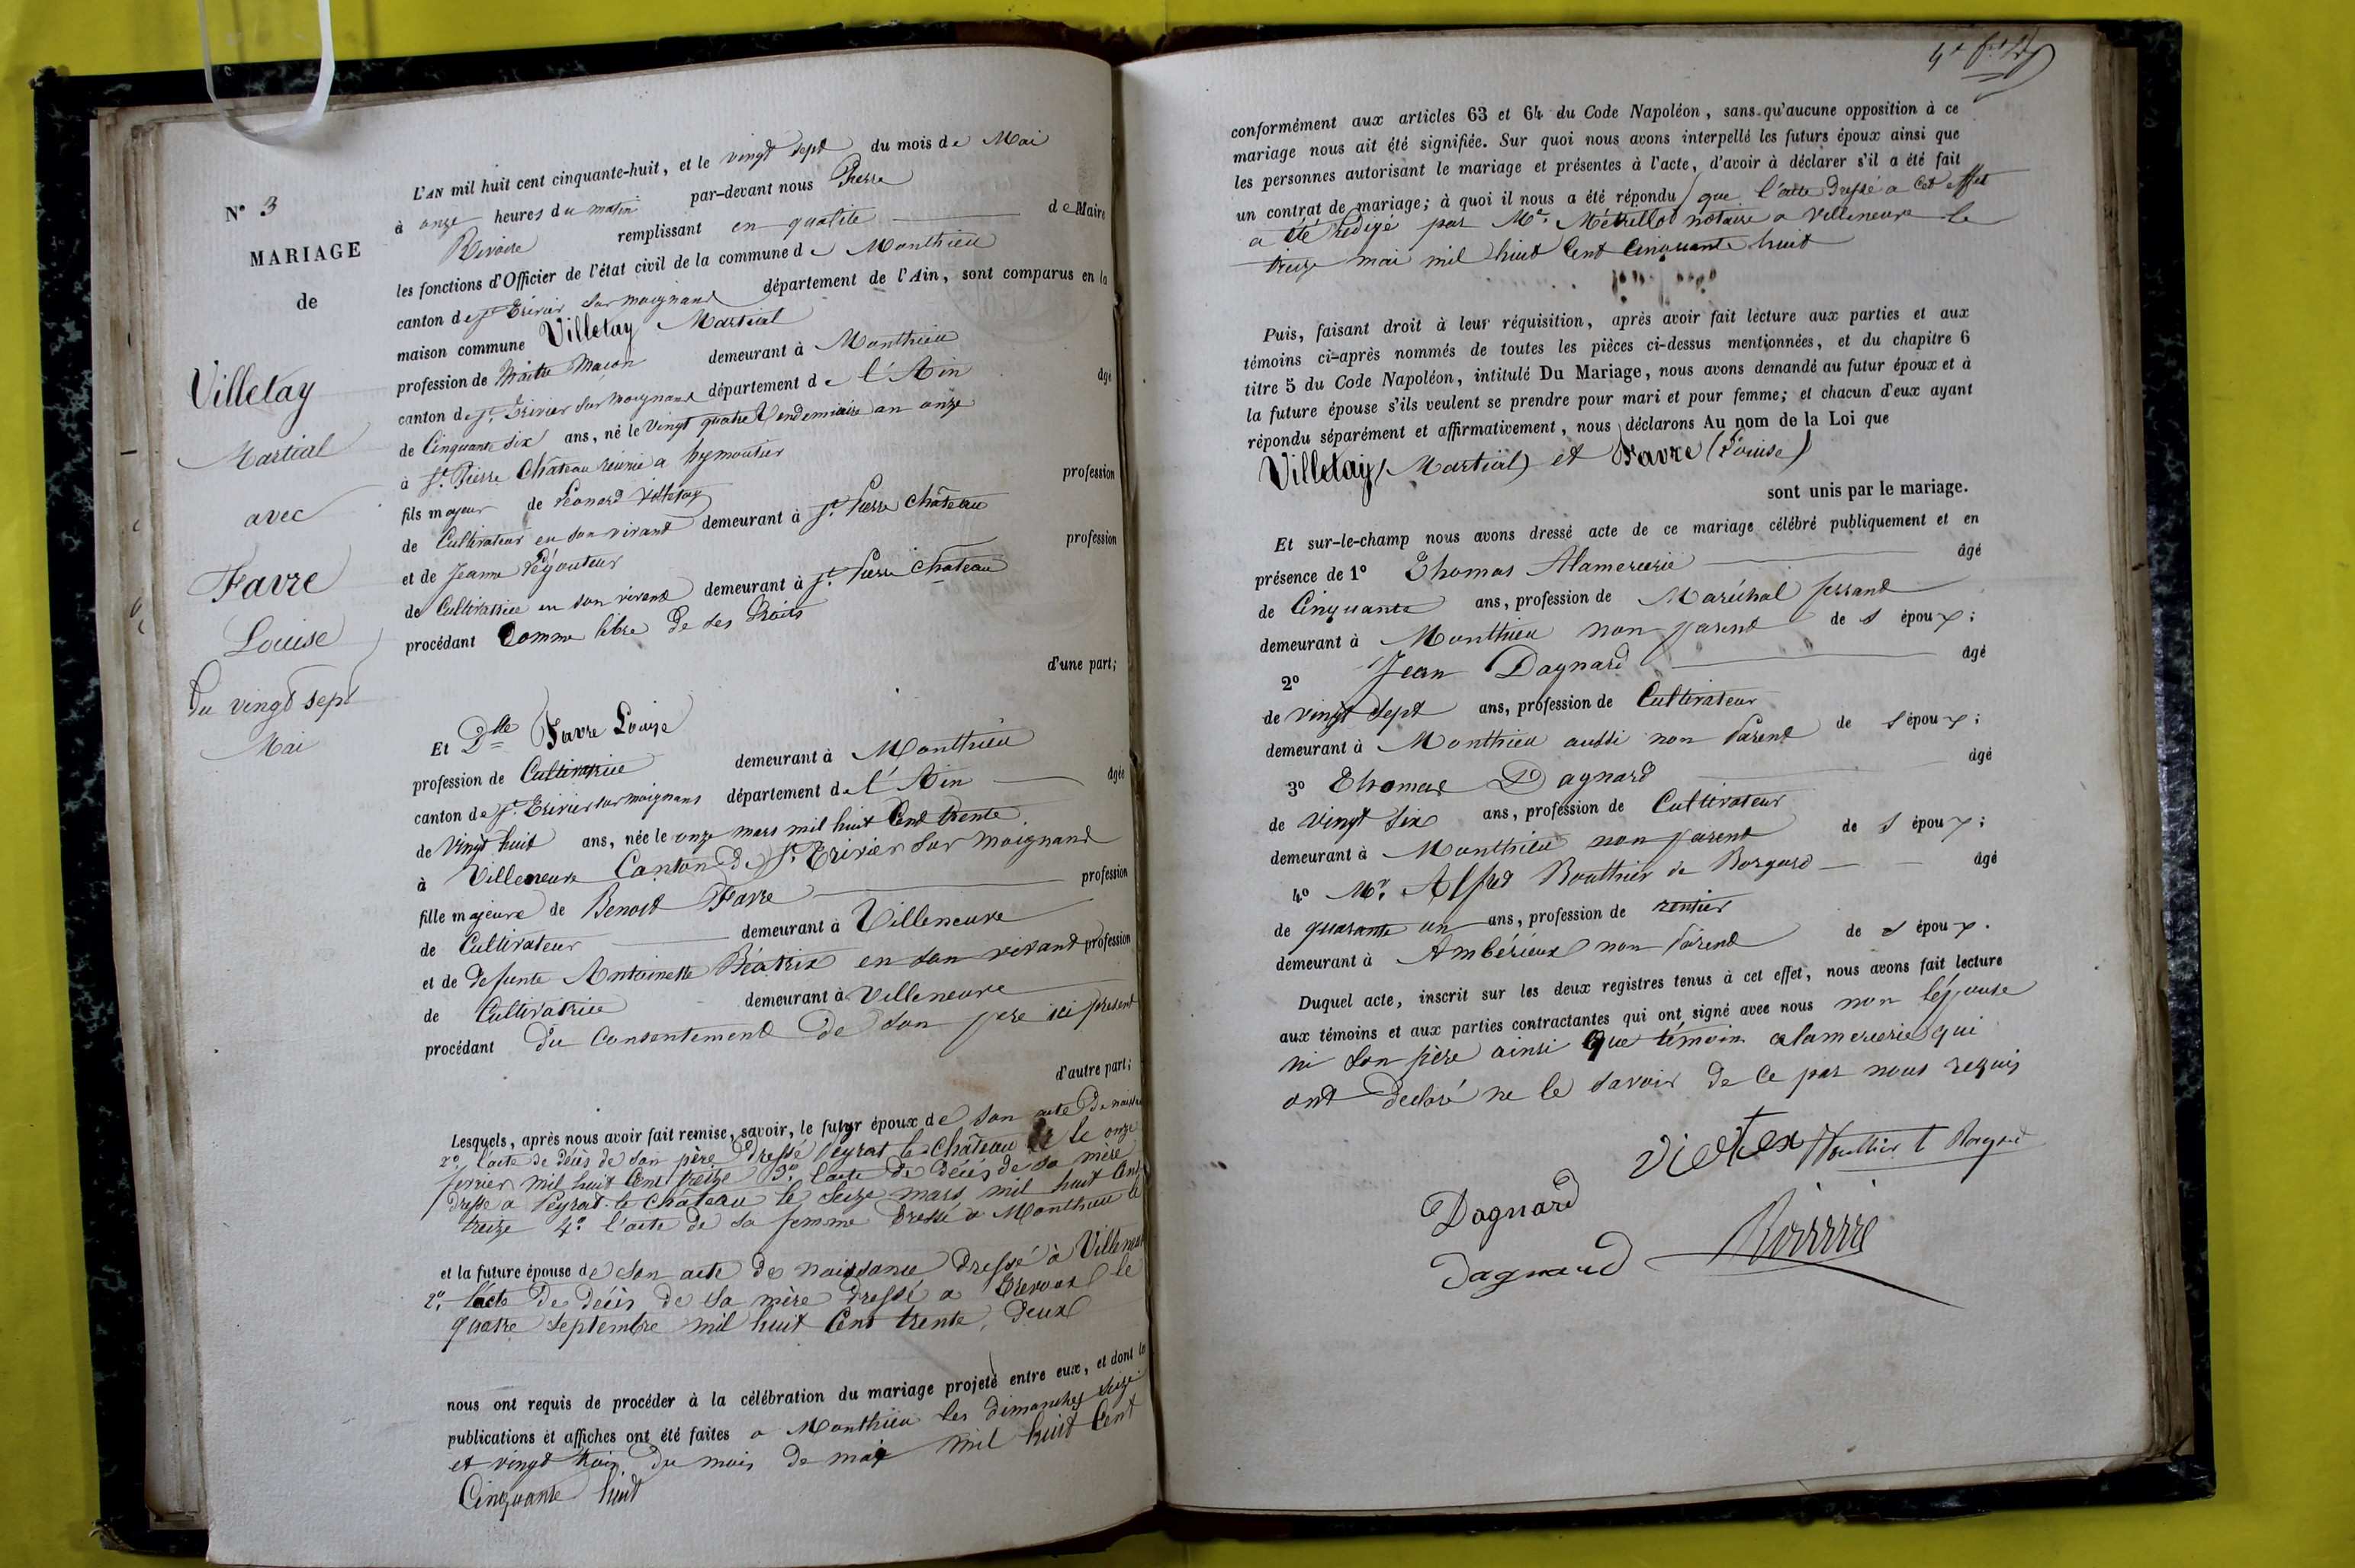 N° 3
MARIAGE
de
Villelay
Martial
avec
Favre
Louise
Du vingt sept
Mai
L'AN mil huit cent cinquante-huit, et le vingt sept du mois de Mai
à onze heures du matin par-devant nous Pierre
remplissant en qualité de Maire
les fonctions d'Officier de l'état civil de la commune de Monthieu
canton de St Trivier sur moignans département de l'Ain, sont comparus en la
maison commune Villelay Martial
profession de Maître Maçon demeurant à Monthieu
canton de St Trivier sur moignans département de l'Ain âgé
de Cinquante six ans, né le Vingt quatre Vendemiaire an onze
à St Pierre Château réunie a hymoutier
fils majeur de Léonard Villelay profession
de Cultivateur en son vivant demeurant à St Pierre Château
et de Jeanne profession
de Cultivatrice en son vivant demeurant à St Pierre Château
procédant Comme libre de ses Droits
d'une part;
Et Dlle Favre Louise
profession de Cultivatrice demeurant à Monthieu
canton de St Trivier sur moignans département de l'Ain âgée
de Vingt huit ans, née le onze mars mil huit Cent trente
à Villeneuve Canton de St Trivier sur moignans
fille majeure de Benoit Favre profession
de Cultivateur demeurant à Villeneuve
et de defunte Antoinette Béatrix en son vivant profession
de Cultivatrice demeurant à Villeneuve
procédant du Consentement de son père ici présent
d'autre part;
Lesquels, après nous avoir fait remise, savoir, le futur époux de son acte de
2° l'acte de décès de son père dressé Peyrat le Château le onze
fevrier mil huit Cent treize 3° l'acte de décès de sa mère
dressé a Peyrat le Château le Seize mars mil huit Cent
treize 4° l'acte de sa femme dressé a Monthieu le
et la future épouse de son acte de naissance dressé à
2° l'acte de décès de sa mère dressé a Trevoux le
quatre septembre mil huit Cent trente deux
nous ont requis de procéder à la célébration du mariage projeté entre eux, et dont les
publications et affiches ont été faites a Monthieu les dimanches seize
et vingt trois du mois de mai mil huit Cent
Cinquante huit
conformément aux articles 63 et 64 du Code Napoléon, sans qu'aucune opposition à ce
mariage nous ait été signifiée. Sur quoi nous avons interpellé les futurs époux ainsi que
les personnes autorisant le mariage et présentes à l'acte, d'avoir à déclarer s'il a été fait
un contrat de mariage; à quoi il nous a été répondu que l'acte dressé a cet effet
a été rédigé par Me notaire a Villeneuve le
treize mai mil huit Cent Cinquante huit
Puis, faisant droit à leur réquisition, après avoir fait lecture aux parties et aux
témoins ci-après nommés de toutes les pièces ci-dessus mentionnées, et du chapitre 6
titre 5 du Code Napoléon, intitulé Du Mariage, nous avons demandé au futur époux et à
la future épouse s'ils veulent se prendre pour mari et pour femme; et chacun d'eux ayant
répondu séparément et affirmativement, nous déclarons Au nom de la Loi que
Villelay (Martial) et Favre (Louise)
sont unis par le mariage.
Et sur-le-champ nous avons dressé acte de ce mariage célébré publiquement et en
présence de 1° Thomas Alamercerie âgé
de Cinquante ans, profession de Maréchal ferrant
demeurant à Monthieu non parent de s époux;
2° Jean Dagnard âgé
de vingt sept ans, profession de Cultivateur
demeurant à Monthieu aussi non Parent de s époux;
3° Thomas Dagnard âgé
de vingt six ans, profession de Cultivateur
demeurant à Monthieu non parent de s époux;
4° Mr. Alfred Bouthier de Borgard âgé
de quarante un ans, profession de rentier
demeurant à Ambérieux non Parent de s époux.
Duquel acte, inscrit sur les deux registres tenus à cet effet, nous avons fait lecture
aux témoins et aux parties contractantes qui ont signé avec nous non l'épouse
ni son père ainsi que témoin alamercerie qui
ont déclaré ne le savoir de ce par nous requis
Dagnard